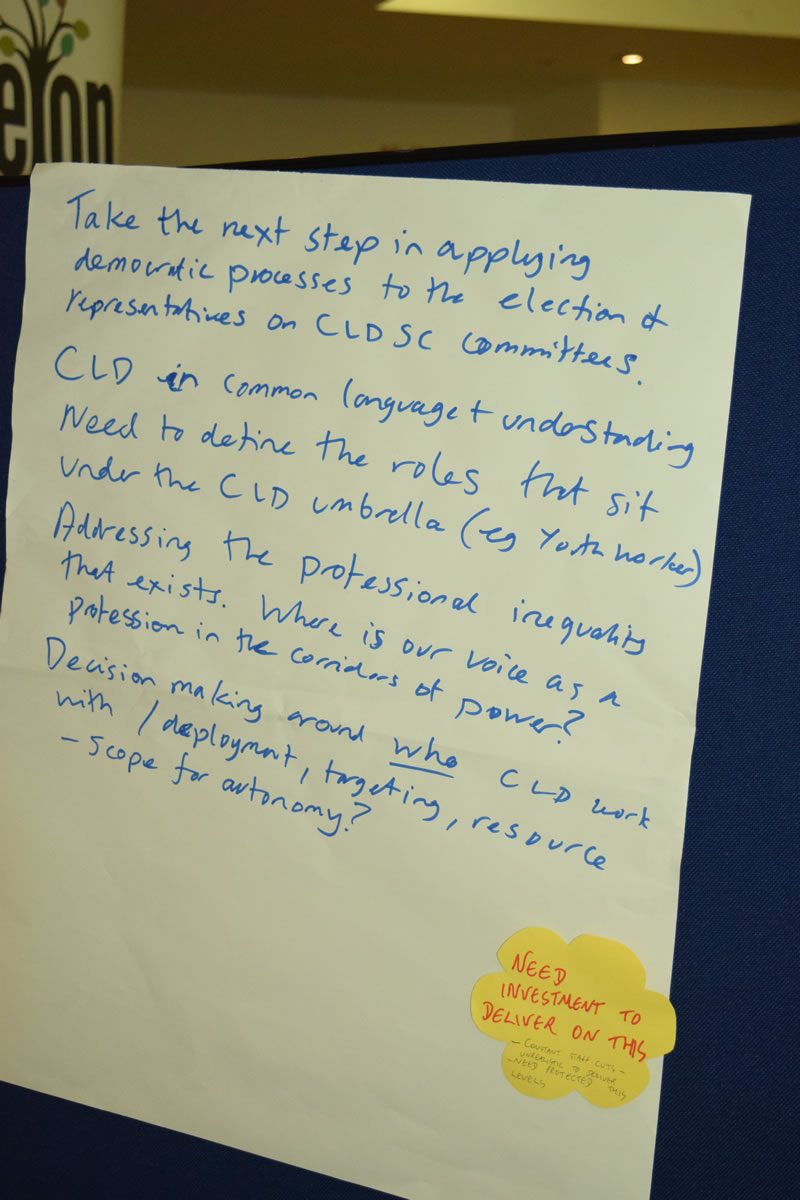 eton
Take the next step in applying
democratic processes to the election of
representatives on CLDSC Committees.
CLD in common language + understanding
Need to define the roles that sit
under the CLD umbrella (eg Youth worker)
Addressing the professional inequality
that exists. Where is our voice as a
profession in the corridors of power?
Decision making around who CLD work
with / deployment, targeting, resource
- scope for autonomy?
NEED
INVESTMENT TO
DELIVER ON THIS
- CONSTANT STAFF CUTS -
UNREALISTIC TO DELIVER
- NEED PROTECTED THIS
LEVELS